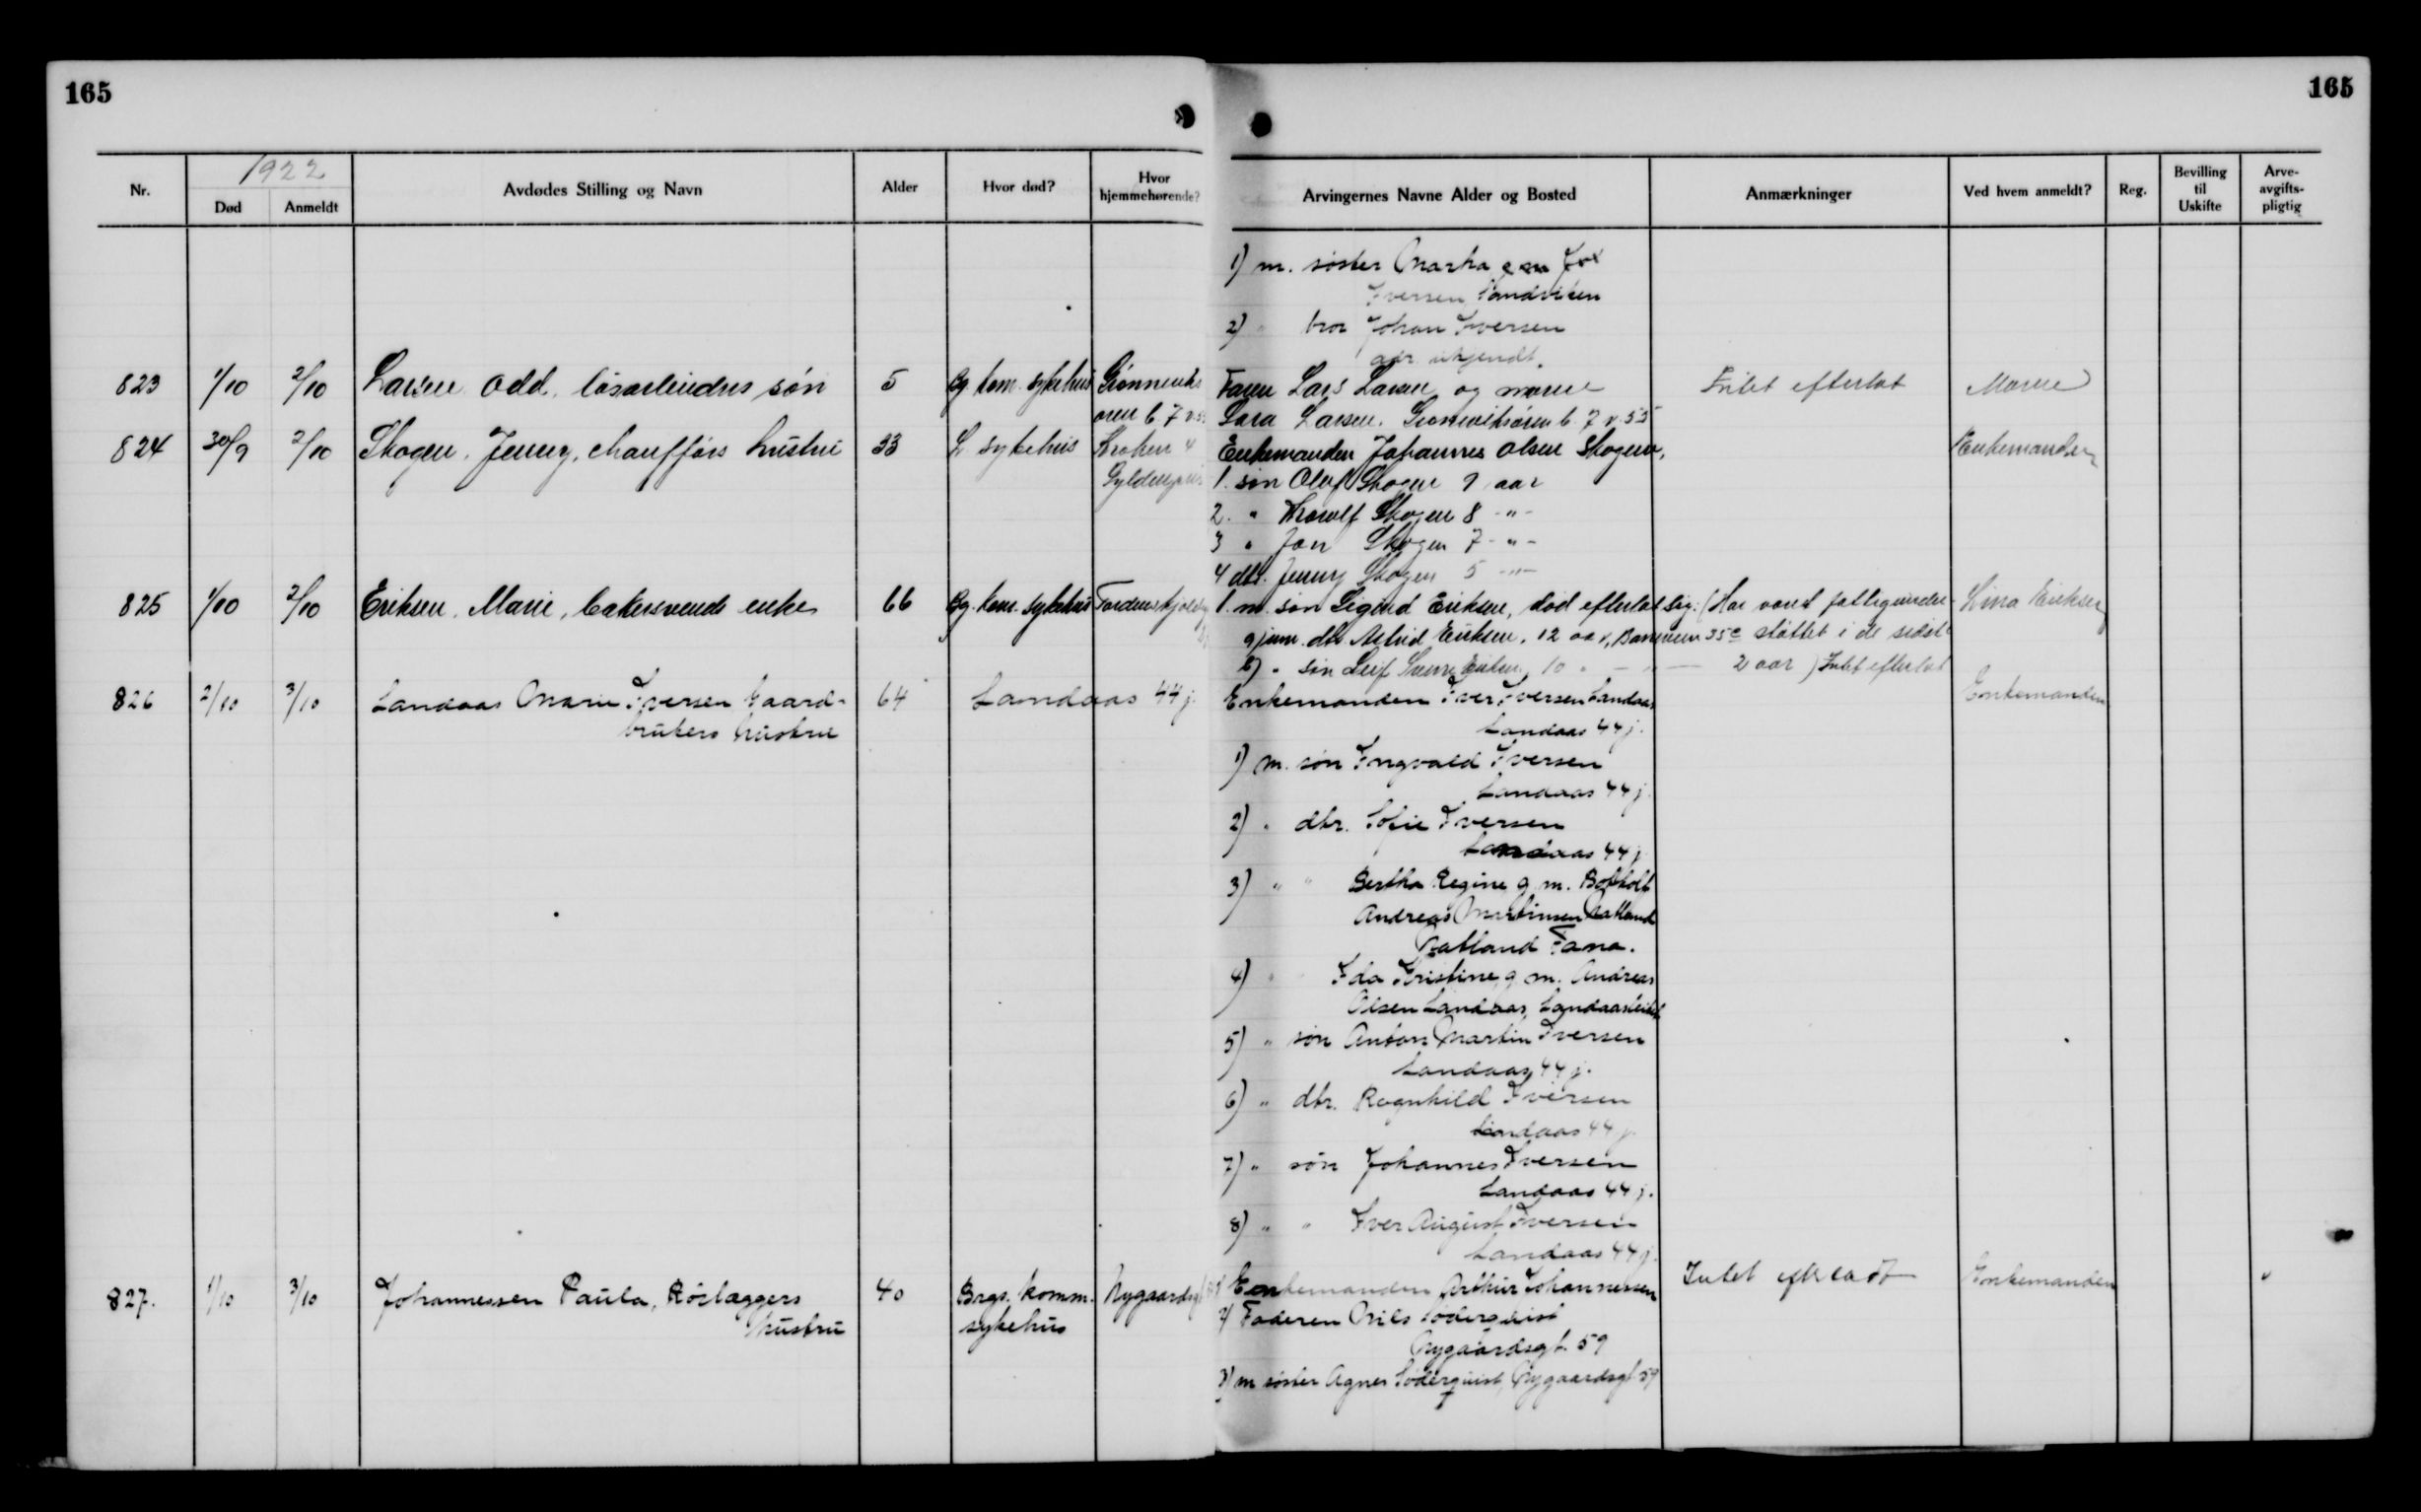 165
165
1922
Nr.
Død
Anmeldt
Avdødes Stilling og Navn
Alder
Hvor død?
Hvor hjemmehørende?
Arvingernes Navne Alder og Bosted
Anmærkninger
Ved hvem anmeldt?
Reg.
Bevilling til Uskifte
Arve-avgifts-pligtig
1) m. søster Marta
Iversen, Sandviken
2) " bror Johan Iversen
adr. ukjendt.
823 1/10 2/10 Larsen Odd, løsarbeiders søn 5 Bg. kom. sykehus
Faren Lars Larsen og moren Intet efterlat Moren
Lara Larsen. b. 7 v. 55
824 30/9 2/10 Skogen, Jenny, chaufførs hustru 33 L sykehus Kroken 4
Enkemanden Johannes Olsen Skogen, Enkemanden
1. søn Olaf Skogen 9 aar
2. " Skogen 8 -"-
3 " Jan Skogen 7 -"-
4 dtr. Jenny Skogen 5 -"-
825 1/10 2/10 Eriksen, Marie, bakersvends enke 66 Bg. kom. sykehus
1. m. søn Sigurd Eriksen, død efterlat sig: (Har været fattigunder- Lina Eriksen
dtr Astrid Eriksen, 12 aar, 35 c støttet i de sidste
b) " søn Leif Sverre Eriksen, 10 " - " - 2 aar) Intet efterlat
826 2/10 3/10 Landaas Marie Iversen Gaard- 64 Landaas 44 j.
brukers hustru
Enkemanden Iver Iversen Landaas Enkemanden
Landaas 44 j.
1) m. søn Ingvald Iversen
Landaas 44 j.
2) " dtr. Sofie Iversen
Landaas 44 j.
3) " " Bertha Regine g. m. Botholf
Andreas Martinsen Natland
Natland Fana.
4) " " Ida Kristine g. m. Andreas
Olsen Landaas,
5) " søn Anton Martin Iversen
Landaas 44 j.
6) " dtr. Ragnhild Iversen
Landaas 44 j.
7) " søn Johannes Iversen
Landaas 44 j.
8) " " Iver August Iversen
Landaas 44 j.
827. 1/10 3/10 Johannessen Paula, Rørlæggers 40 Brgs. komm. Nygaardsgt
hustru sykehus
Enkemanden Arthur Johannessen Intet efterladt Enkemanden "
2) Faderen Nils Søderquist
Nygaardsgt. 59
3) m søster Agnes Søderquist, Nygaardsgt 59